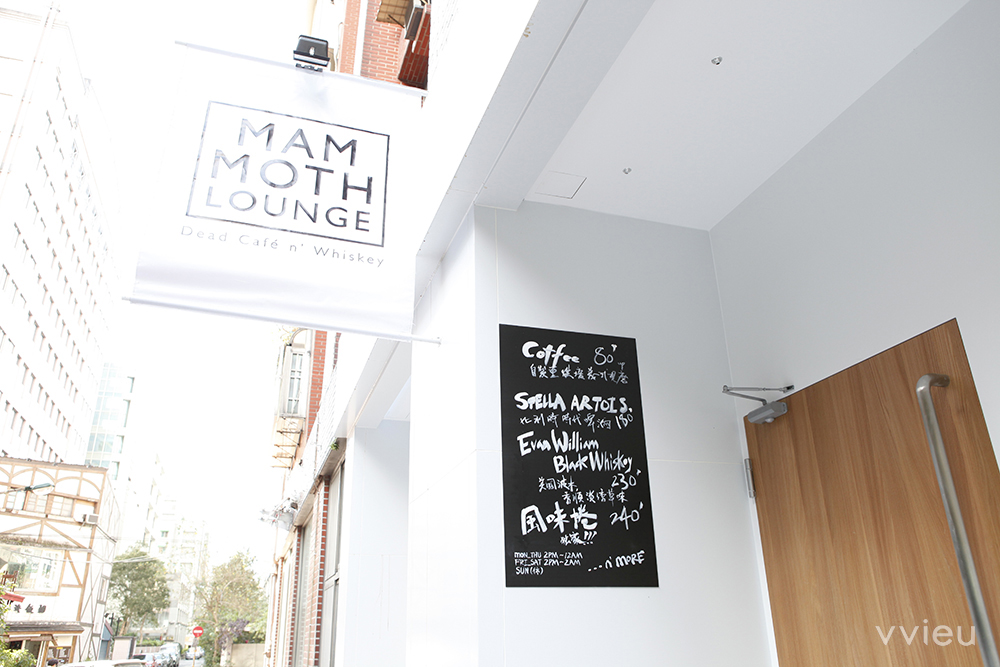 MAM
MOTH
LOUNGE
Dead Café n' Whiskey
Coffee 80
STELLA ARTOIS.
比利時時代啤酒 180
Evan William
Black Whiskey
美國波本 230
香順淡濃草味
風味捲 240
獨家!!!
MON_THU 2PM-12AM
FRI_SAT 2PM-2AM
SUN(休)
...n' MORE
vvieu